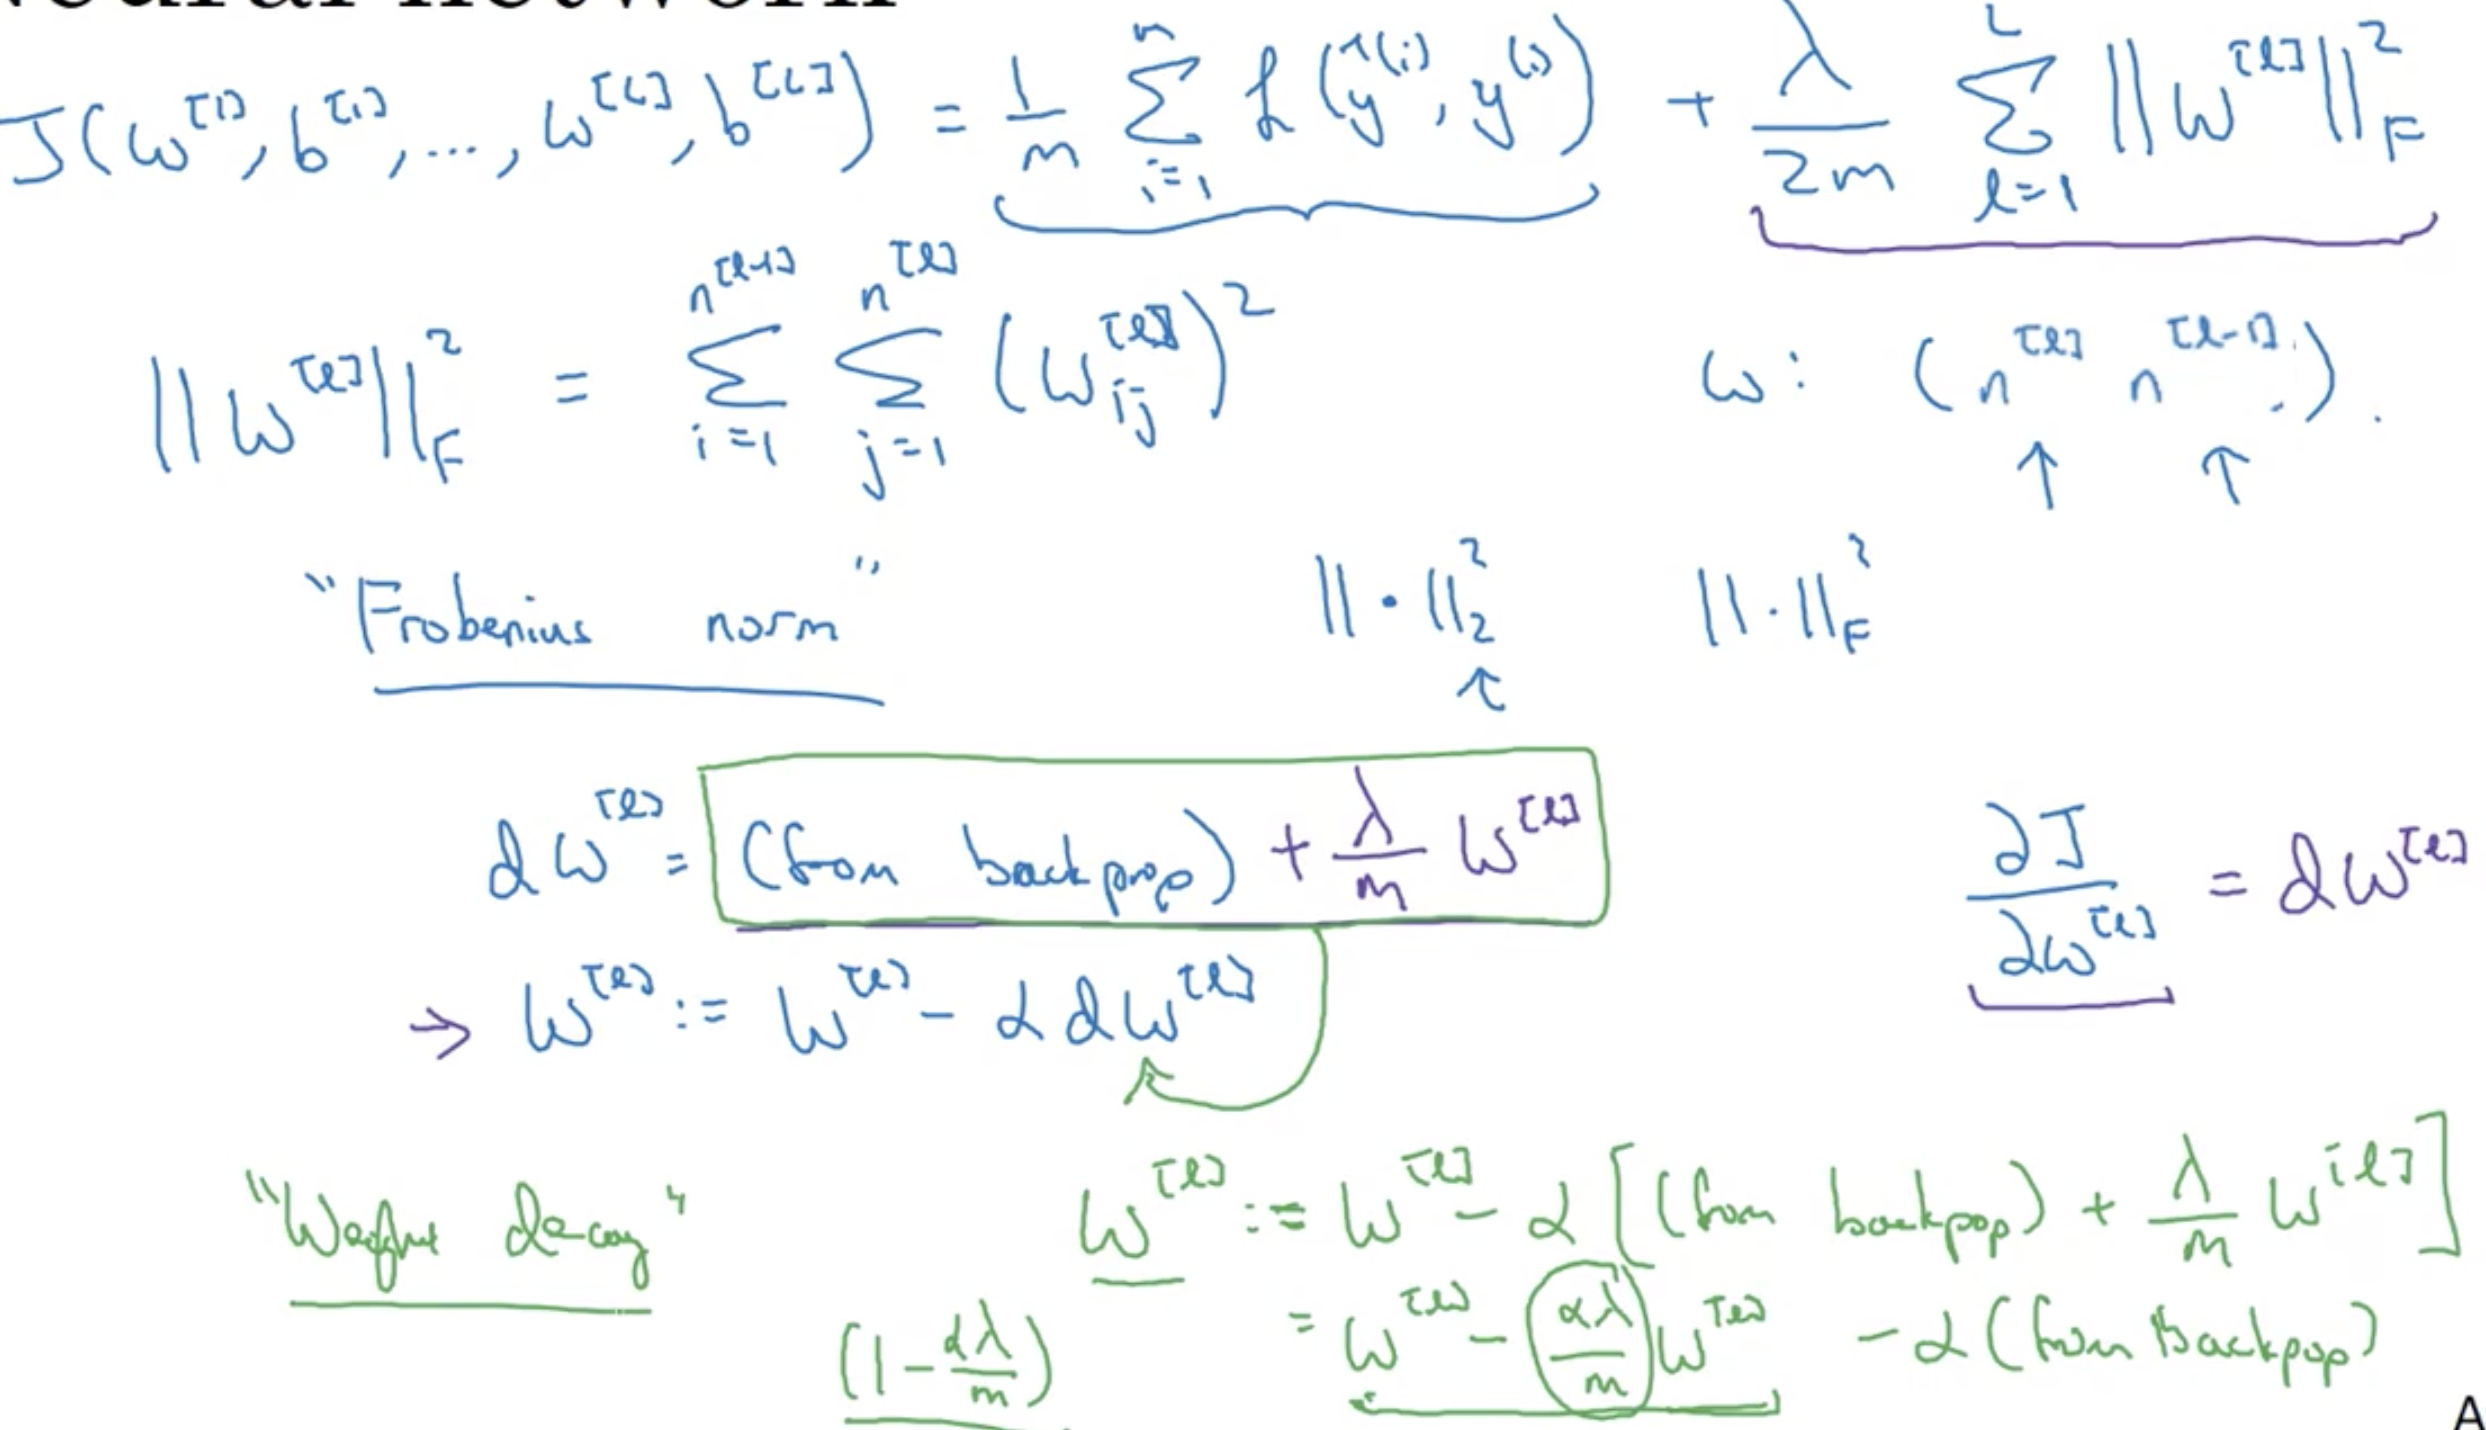 neural network
J(w^[1], b^[1], ..., w^[L], b^[L]) = 1/m Σ_{i=1}^{m} ℒ(ŷ^(i), y^(i)) + λ/2m Σ_{l=1}^{L} ||w^[l]||_F^2
||w^[l]||_F^2 = Σ_{i=1}^{n^[l-1]} Σ_{j=1}^{n^[l]} (w_ij^[l])^2   w: (n^[l] n^[l-1]).
"Frobenius norm"   ||·||_2^2   ||·||_F^2
dw^[l] = (from backprop) + λ/m w^[l]   ∂J/∂w^[l] = dw^[l]
→ w^[l] := w^[l] - α dw^[l]
"Weight decay"   w^[l] := w^[l] - α [(from backpop) + λ/m w^[l]]
(1 - αλ/m)   = w^[l] - αλ/m w^[l] - α (from backpop)
A